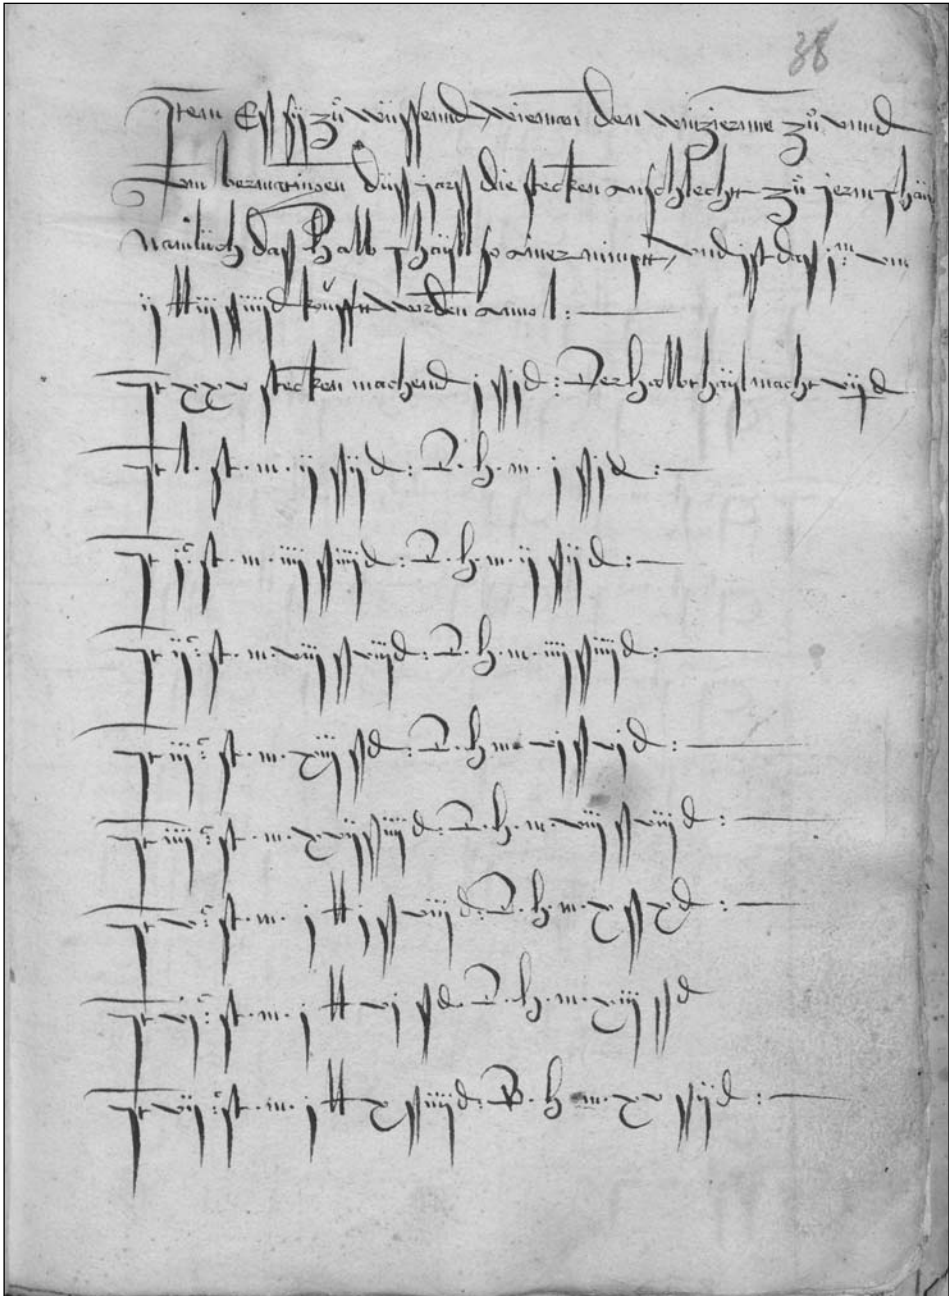 38
Item Es sy zů wüssennd, wie man den winzieren zů unnd
um bermatingen düss jars die stecken anschlecht zů jerm thäil
Namlich das Halb thäyll so einer nimpt, und ist das j m um
ij lb iij ß iiij d koufft worden anno l :
It xxv stecken machend j ß j d : Der Halb thäyl macht vij d
It l · st · m · ij ß ij d : D · h · m · j ß j d :
It j c st · m · iiij ß iiij d : D · h · m · ij ß ij d :
It ij c st · m · viij ß viij d : D · h · m · iiij ß iiij d :
It iij c st · m · xiij ß d : D · h · m · vj ß vj d :
It iiij c st · m · xvij ß iiij d : D · h · m · viij ß viij d :
It v c st · m · j lb j ß viij d : D · h · m · x ß x d :
It vj c st · m · j lb vj ß d D · h · m · xiij ß d
It vij c st · m · j lb x ß iiij d : D · h · m · xv ß ij d :